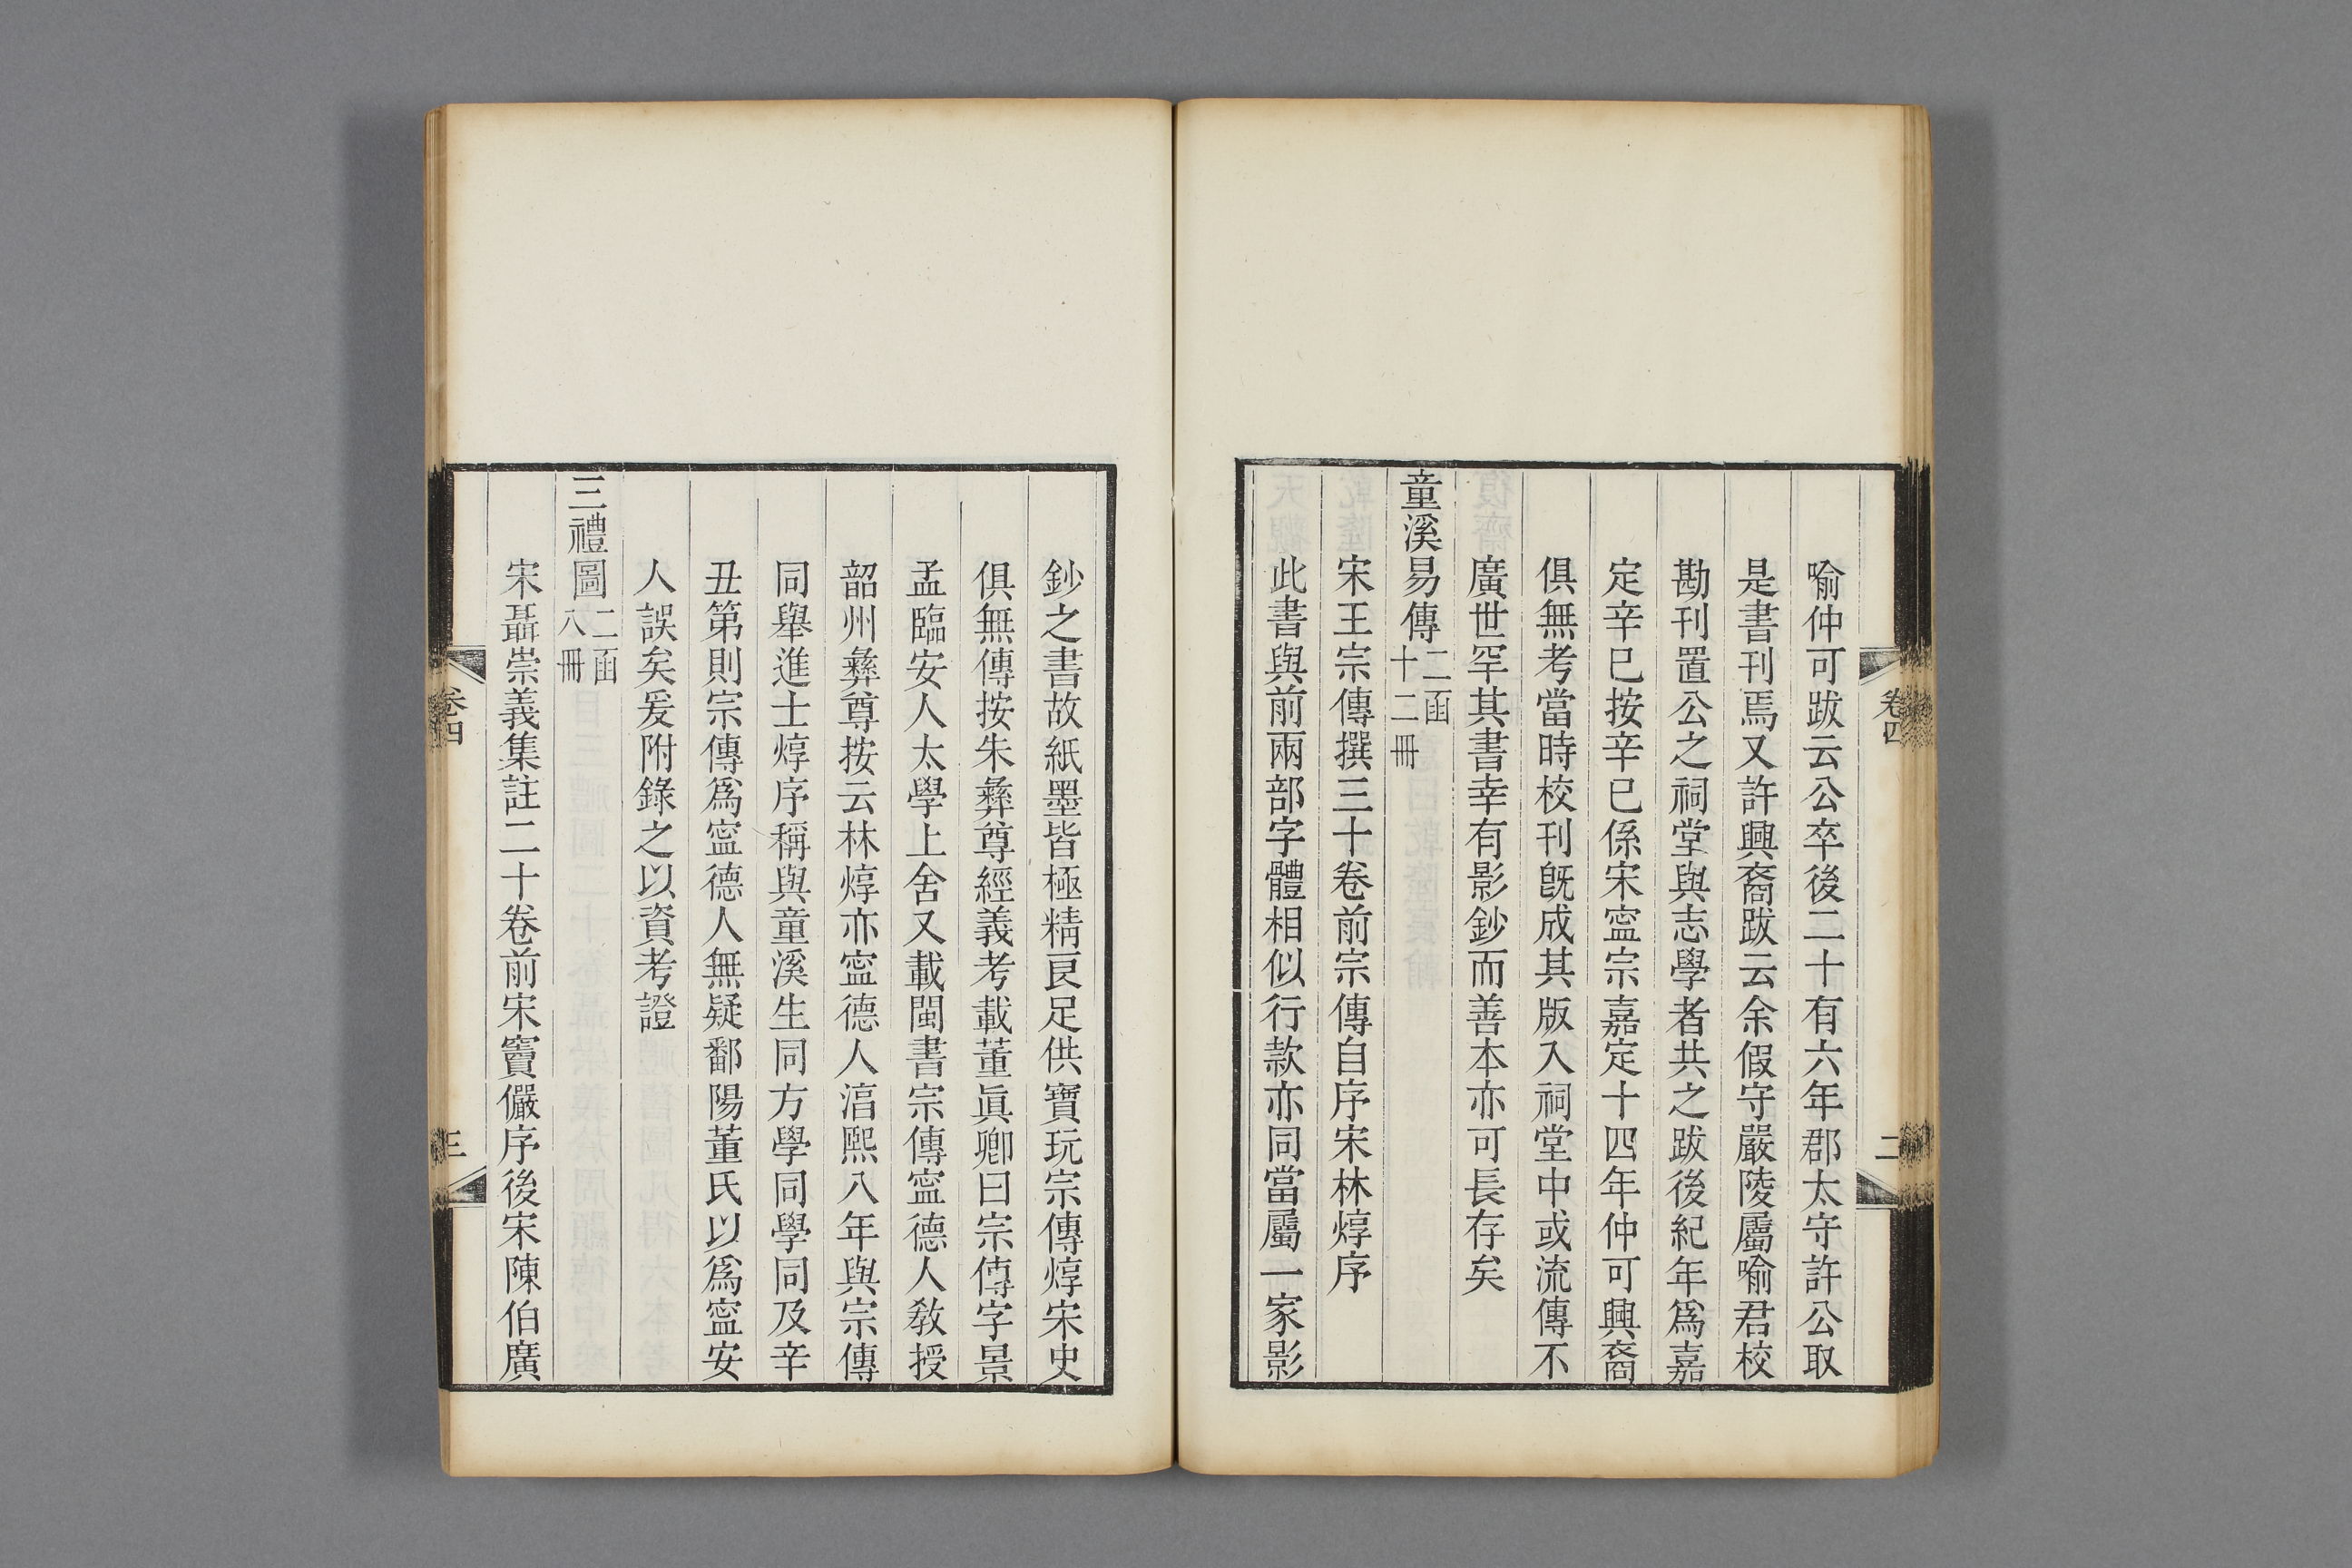 喻仲可跋云公卒後二十有六年郡太守許公取
是書刊焉又許興裔跋云余假守嚴陵屬喻君校
勘刊置公之祠堂與志學者共之跋後紀年爲嘉
定辛巳按辛巳係宋寍宗嘉定十四年仲可興裔
俱無考當時校刊旣成其版入祠堂中或流傳不
廣世罕其書幸有影鈔而善本亦可長存矣
童溪易傳二函十二冊
宋王宗傳撰三十卷前宗傳自序宋林焞序
此書與前兩部字體相似行款亦同當屬一家影
卷四
二
鈔之書故紙墨皆極精良足供寶玩宗傳焞宋史
俱無傳按朱彝尊經義考載董眞卿曰宗傳字景
孟臨安人太學上舍又載閩書宗傳寍德人敎授
韶州彝尊按云林焞亦寍德人湻熙八年與宗傳
同舉進士焞序稱與童溪生同方學同學同及辛
丑第則宗傳爲寍德人無疑鄱陽董氏以爲寍安
人誤矣爰附錄之以資考證
三禮圖二函八冊
宋聶崇義集註二十卷前宋竇儼序後宋陳伯廣
卷四
三